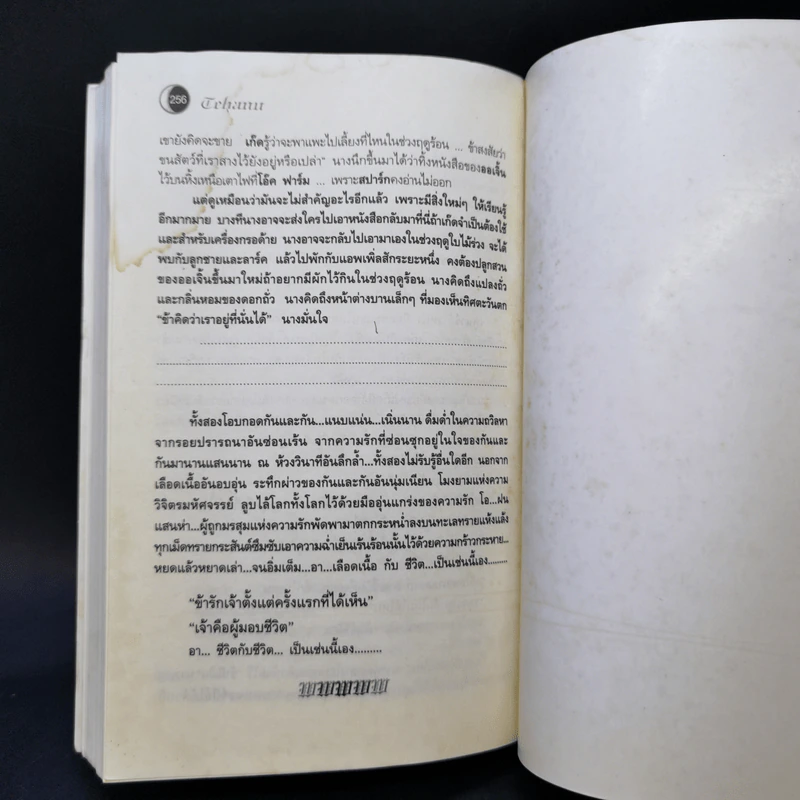 256 Tehanu
เขายังคิดจะขาย เก็ดรู้ว่าจะพาแพะไปเลี้ยงที่ไหนในช่วงฤดูร้อน ... ข้าสงสัยว่า
ขนสัตว์ที่เราสางไว้ยังอยู่หรือเปล่า" นางนึกขึ้นมาได้ว่าทิ้งหนังสือของออเจิ้น
ไว้บนหิ้งเหนือเตาไฟที่โอ๊ค ฟาร์ม ... เพราะสปาร์กคงอ่านไม่ออก
แต่ดูเหมือนว่ามันจะไม่สำคัญอะไรอีกแล้ว เพราะมีสิ่งใหม่ๆ ให้เรียนรู้
อีกมากมาย บางทีนางอาจจะส่งใครไปเอาหนังสือกลับมาที่นี่ถ้าเก็ดจำเป็นต้องใช้
และสำหรับเครื่องกรอด้าย นางอาจจะกลับไปเอามาเองในช่วงฤดูใบไม้ร่วง จะได้
พบกับลูกชายและลาร์ค แล้วไปพักกับแอพเพิ่ลสักระยะหนึ่ง คงต้องปลูกสวน
ของออเจิ้นขึ้นมาใหม่ถ้าอยากมีผักไว้กินในช่วงฤดูร้อน นางคิดถึงแปลงถั่ว
และกลิ่นหอมของดอกถั่ว นางคิดถึงหน้าต่างบานเล็กๆ ที่มองเห็นทิศตะวันตก
"ข้าคิดว่าเราอยู่ที่นั่นได้" นางมั่นใจ
ทั้งสองโอบกอดกันและกัน...แนบแน่น...เนิ่นนาน ดื่มด่ำในความถวิลหา
จากรอยปรารถนาอันซ่อนเร้น จากความรักที่ซ่อนซุกอยู่ในใจของกันและ
กันมานานแสนนาน ณ ห้วงวินาทีอันลึกล้ำ...ทั้งสองไม่รับรู้อื่นใดอีก นอกจาก
เลือดเนื้ออันอบอุ่น ระทึกผ่าวของกันและกันอันนุ่มเนียน โมงยามแห่งความ
วิจิตรมหัศจรรย์ ลูบไล้โลกทั้งโลกไว้ด้วยมืออุ่นแกร่งของความรัก โอ...ฝน
แสนห่า...ผู้ถูกมรสุมแห่งความรักพัดพามาตกกระหน่ำลงบนทะเลทรายแห้งแล้ง
ทุกเม็ดทรายกระสันต์ซึมซับเอาความฉ่ำเย็นเร้นร้อนนั้นไว้ด้วยความกร้าวกระหาย...
หยดแล้วหยาดเล่า...จนอิ่มเต็ม...อา...เลือดเนื้อ กับ ชีวิต...เป็นเช่นนี้เอง.........
"ข้ารักเจ้าตั้งแต่ครั้งแรกที่ได้เห็น"
"เจ้าคือผู้มอบชีวิต"
อา... ชีวิตกับชีวิต... เป็นเช่นนี้เอง.........